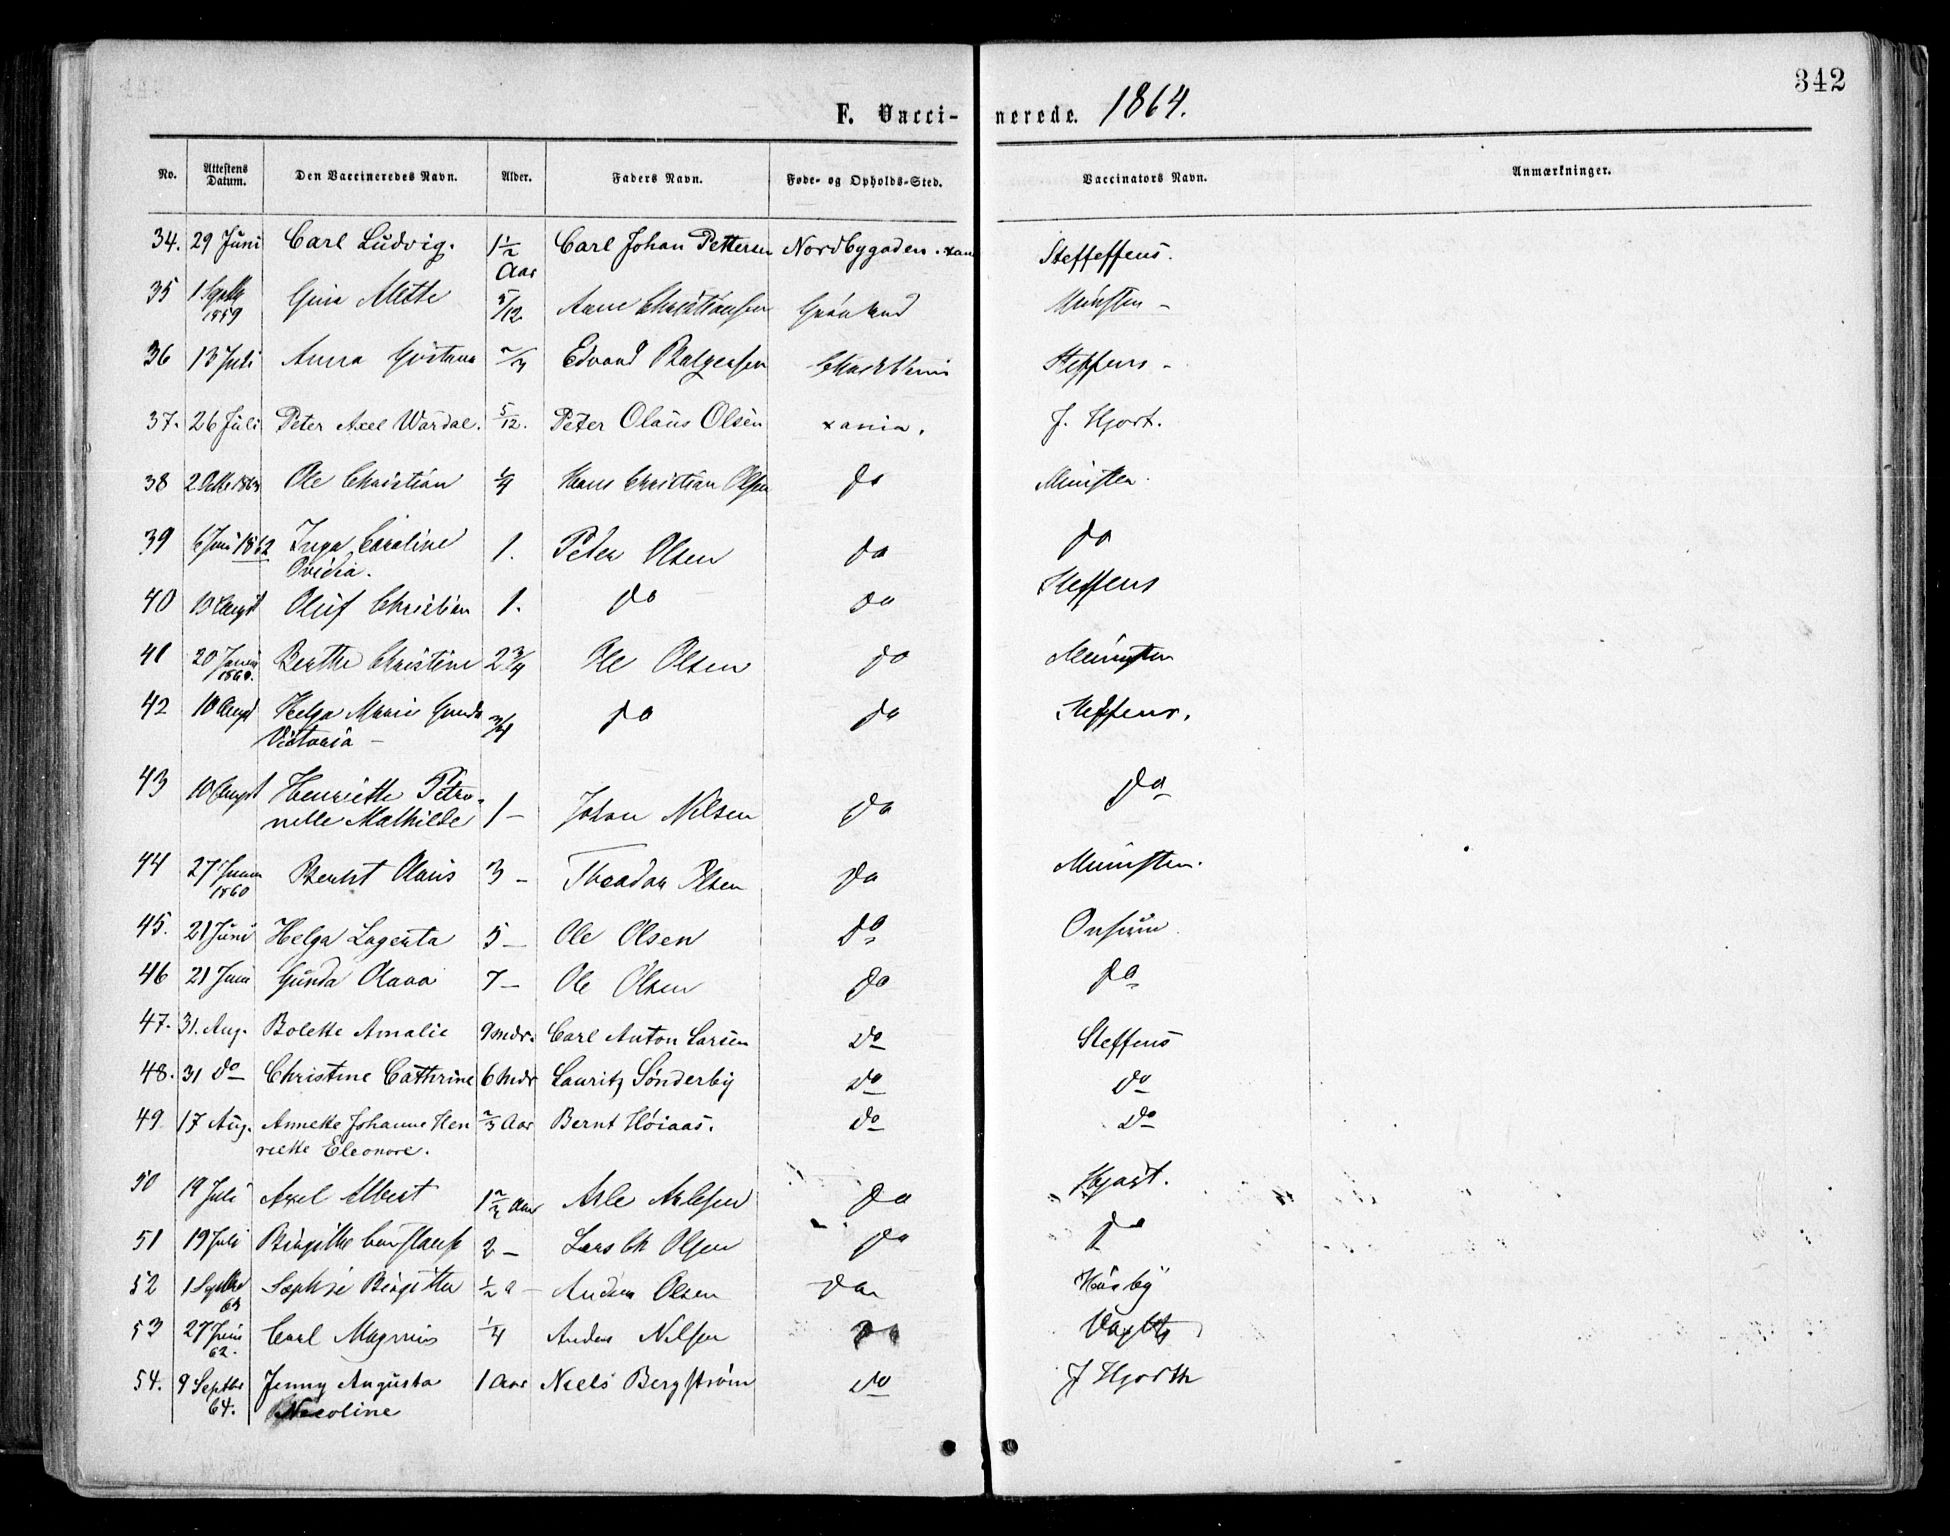 342
F. Vacci- nerede. 1864.
No. Attestens Datum. Den Vaccineredes Navn. Alder. Faders Navn. Føde- og Opholds-Sted. Vaccinators Navn. Anmærkninger.
34. 29 Juni Carl Ludvig. 1 1/2 Aar Carl Johan Pettersen Nordbygaden. xania
35 1 1859 Mette 5/12 Christiansen Grønland Münster -
36 13 Juli Anna 2/3 Edvard Steffens -
37. 26 Juli Peter Axel Wardal. 5/12. Peter Olaus Olsen xania. J. Hjort.
38 2 1863 Ole Christian 1/4 Hans Christian Olsen do Münster.
39 6 Juni 1862 Inga Caroline 1. Peter Olsen do do
Ovidia.
40 13 Augst Oluf Christian 1. do do Steffens
41 20 1860. Berthe Christine 2 3/4 Ole Olsen do Münster
42 10 Augst Helga Marie Gunda 3/4 do do Steffens.
Victoria -
43 10 Augst Henriette Petro- 1 - Johan Nilsen do do
nelle Mathilde
44 27 1860 Bernt Olaus 3 - Theodor Olsen do Münster.
45. 21 Juni Helga Lagerta 5 - Ole Olsen do Onsum
46 21 Juni Gunda Olava 7 - Ole Olsen do do
47. 31. Aug. Bolette Amalie 9 mdr. Carl Anton Larsen do Steffens
48. 31 do Christine Cathrine 6 Mdr Lauritz Sønderby do do
49. 17 Aug. Annette Johanne Hen 2/3 Aar Bernt Høiaas. do do
riette Eleonore.
50 19 Juli Axel Albert 1 1/2 Aar Asle Aslesen do Hjort.
51 19 Juli Birgitte 2 - Lars Ch Olsen do do
52 1 Septbr 63 Sophie Birgitta 1/2 a - Anders Olsen do Husby
53 27 Juni 62. Carl Magnus 1/4 Anders Nilsen do
54. 9 Septbr 64. Jenny Augusta 1 Aar Niels Bergstrøm do J Hjorth
Nicoline